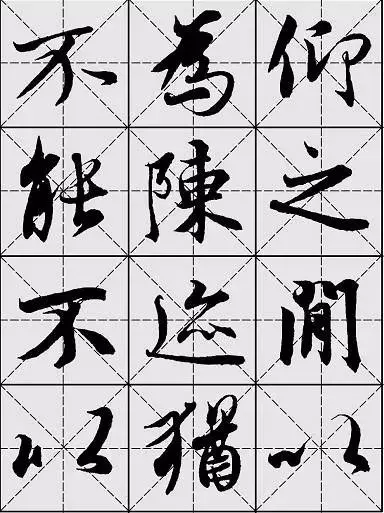 仰之間以
為陳迹猶
不能不以